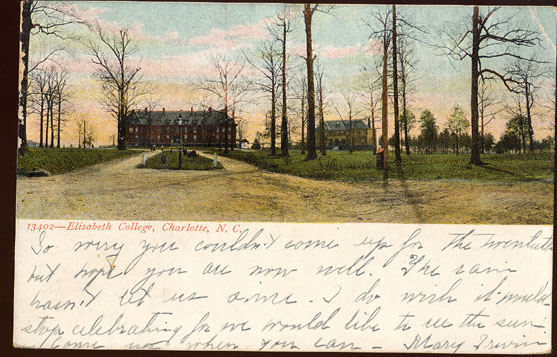 13402—Elizabeth College, Charlotte, N. C.
So sorry you couldn't come up for the twentieth
but hope you are now well. The rain
hasn't let us alone. I do wish it would
stop celebrating for we would like to see the sun.
Come up when you can — Mary Irwin